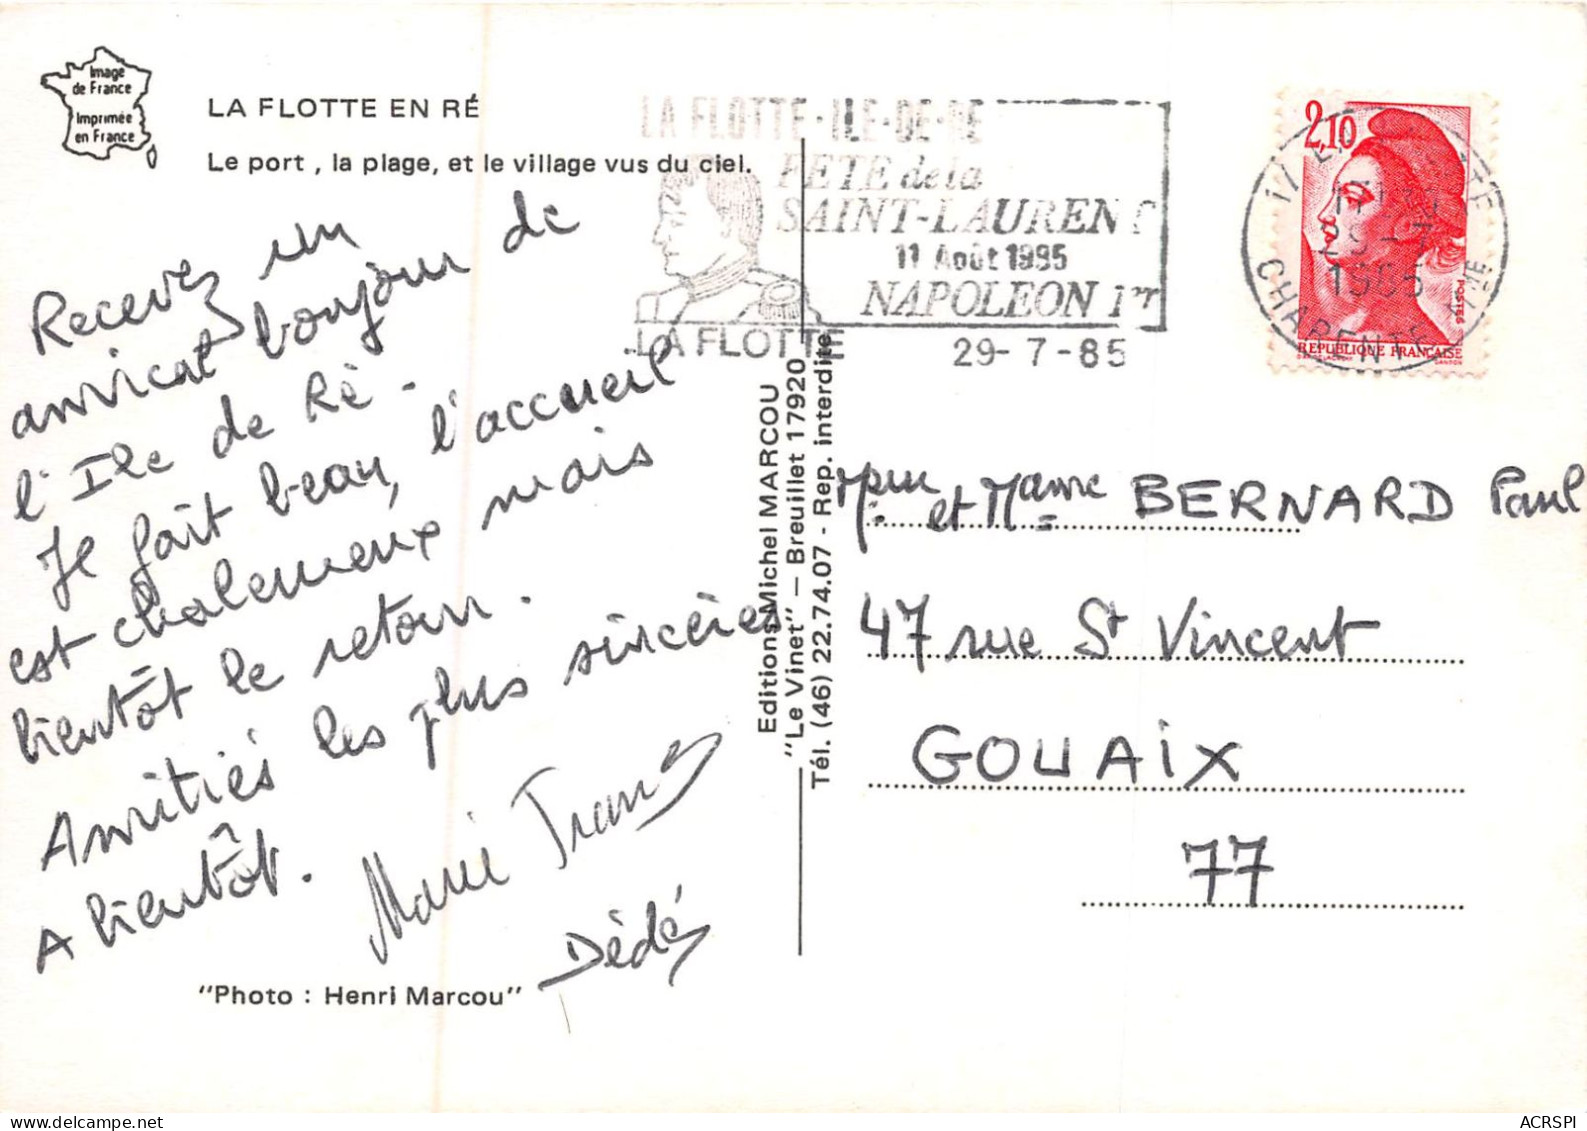 Image
de France
Imprimée
en France
LA FLOTTE EN RÉ
Le port , la plage, et le village vus du ciel.
Recevez un
amical bonjour de
l'Ile de Ré.
Il fait beau, l'accueil
est chaleureux mais
bientôt le retour.
Amitiés les plus sincères
A bientôt.
Marie
Dédé
"Photo : Henri Marcou"
Editions Michel MARCOU
"Le Vinet" — Breuillet 17920
Tél. (46) 22.74.07 - Rep. interdite
LA FLOTTE · ILE-DE-RE
FETE de la
SAINT-LAURENT
11 Août 1985
NAPOLEON 1er
LA FLOTTE
29-7-85
2,10
POSTES
REPUBLIQUE FRANCAISE
GANDON
17 LA FLOTTE
29-7
1985
CHARENTE-MME
et Mame BERNARD Paul
47 rue St Vincent
GOUAIX
77
ACRSPI